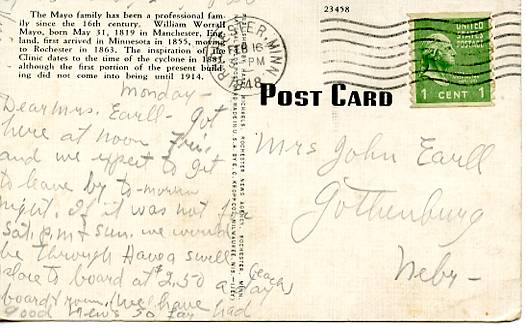 The Mayo family has been a professional fam-
ily since the 16th century. William Worrall
Mayo, born May 31, 1819 in Manchester, Eng-
land, first arrived in Minnesota in 1855, moving
to Rochester in 1863. The inspiration of the
Clinic dates to the time of the cyclone in 1883,
although the first portion of the present build-
ing did not come into being until 1914.
Monday -
Dear Mrs. Earll - Got
here at noon
and we expect to get
to leave by to-morrow
night. If it was not for
Sat. p.m & Sun. we would
be through Have a swell
place to board at $2.50 a day (each)
board & room. We have
good news so far had
ROCHESTER, MINN.
FEB 16
PM
1948
23458
UNITED
STATES
POSTAGE
1 CENT 1
POST CARD
Mrs John Earll
Gothenburg
Nebr -